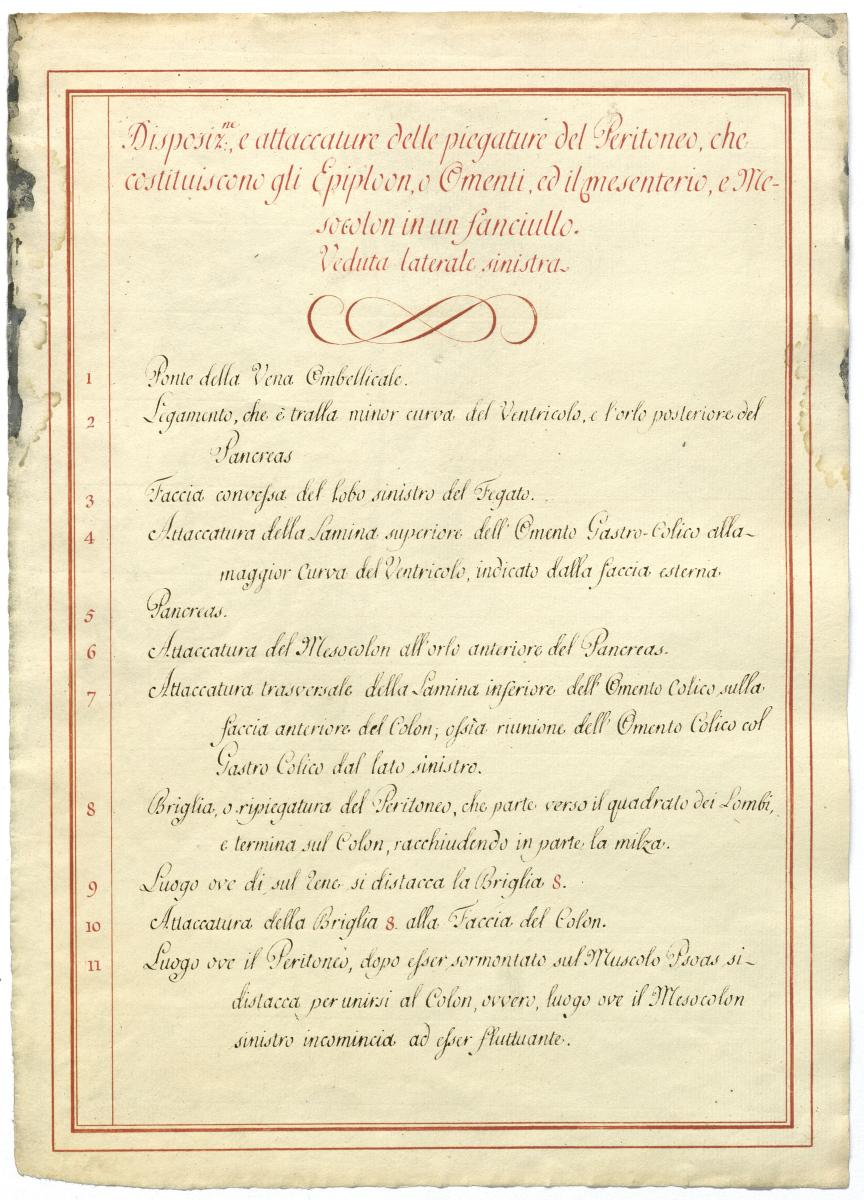 Disposiz.ne, e attaccature delle piegature del Peritoneo, che
costituiscono gli Epiploon, o Omenti, ed il mesenterio, e Me-
socolon in un fanciullo.
Veduta laterale sinistra
1 Ponte della Vena Ombellicale.
2 Legamento, che è tralla minor curva del Ventricolo, e l'orlo posteriore del
Pancreas
3 Faccia convessa del lobo sinistro del Fegato.
4 Attaccatura della Lamina superiore dell' Omento Gastro-Colico alla
maggior Curva del Ventricolo, indicato dalla faccia esterna
5 Pancreas.
6 Attaccatura del Mesocolon all'orlo anteriore del Pancreas.
7 Attaccatura trasversale della Lamina inferiore dell' Omento Colico sulla
faccia anteriore del Colon; ossia riunione dell' Omento Colico col
Gastro Colico dal lato sinistro.
8 Briglia, o ripiegatura del Peritoneo, che parte verso il quadrato dei Lombi,
e termina sul Colon, racchiudendo in parte la milza.
9 Luogo ove di sul Rene si distacca la Briglia 8.
10 Attaccatura della Briglia 8. alla Faccia del Colon.
11 Luogo ove il Peritoneo, dopo esser sormontato sul Muscolo Psoas si-
distacca per unirsi al Colon, ovvero, luogo ove il Mesocolon
sinistro incomincia ad esser fluttuante.